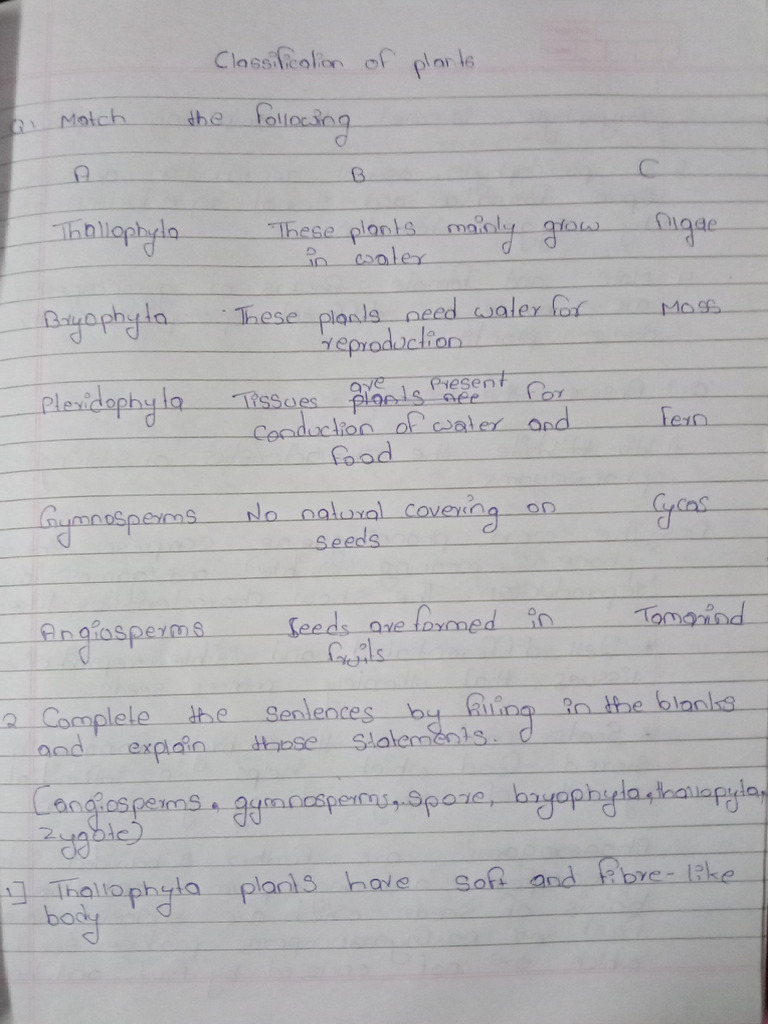 Classification of plants
Q1 Match the following
A B C
Thallophyta These plants mainly grow Algae
in water
Bryophyta These plants need water for Moss
reproduction
Pteridophyta Tissues are present for Fern
conduction of water and
food
Gymnosperms No natural covering on Cycas
seeds
Angiosperms Seeds are formed in Tamarind
fruits
2 Complete the sentences by filling in the blanks
and explain those statements.
(angiosperms, gymnosperms, spore, bryophyta, thallopyta,
zygote)
1] Thallophyta plants have soft and fibre-like
body